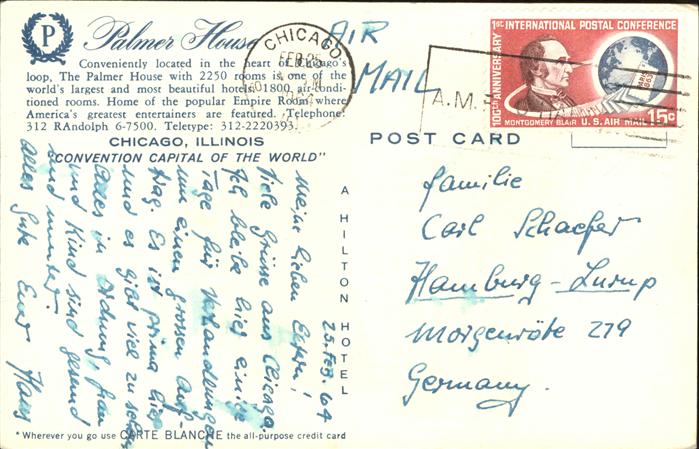 P
Palmer House
Conveniently located in the heart of Chicago's
loop, The Palmer House with 2250 rooms is one of the
world's largest and most beautiful hotels. 1800 air-condi-
tioned rooms. Home of the popular Empire Room where
America's greatest entertainers are featured. Telephone:
312 RAndolph 6-7500. Teletype: 312-2220393.
CHICAGO, ILLINOIS
"CONVENTION CAPITAL OF THE WORLD"
A HILTON HOTEL
* Wherever you go use CARTE BLANCHE the all-purpose credit card
AIR
MAIL
CHICAGO
FEB 25
A.M.
1st INTERNATIONAL POSTAL CONFERENCE
100th ANNIVERSARY
MONTGOMERY BLAIR U.S. AIR MAIL 15c
POST CARD
25. Feb. 64
Meine lieben Eltern!
Viele Grüsse aus Chicago.
Ich bleibe hier einige
Tage für Verhandlungen
um einen grossen Auf-
trag. Es ist prima hier
und es gibt viel zu sehen
Alles in Ordnung, Frau
und Kind sind gesund
und munter.
Alles Gute Euer Hans
Familie
Carl Schaefer
Hamburg-Lurup
Morgenröte 279
Germany.